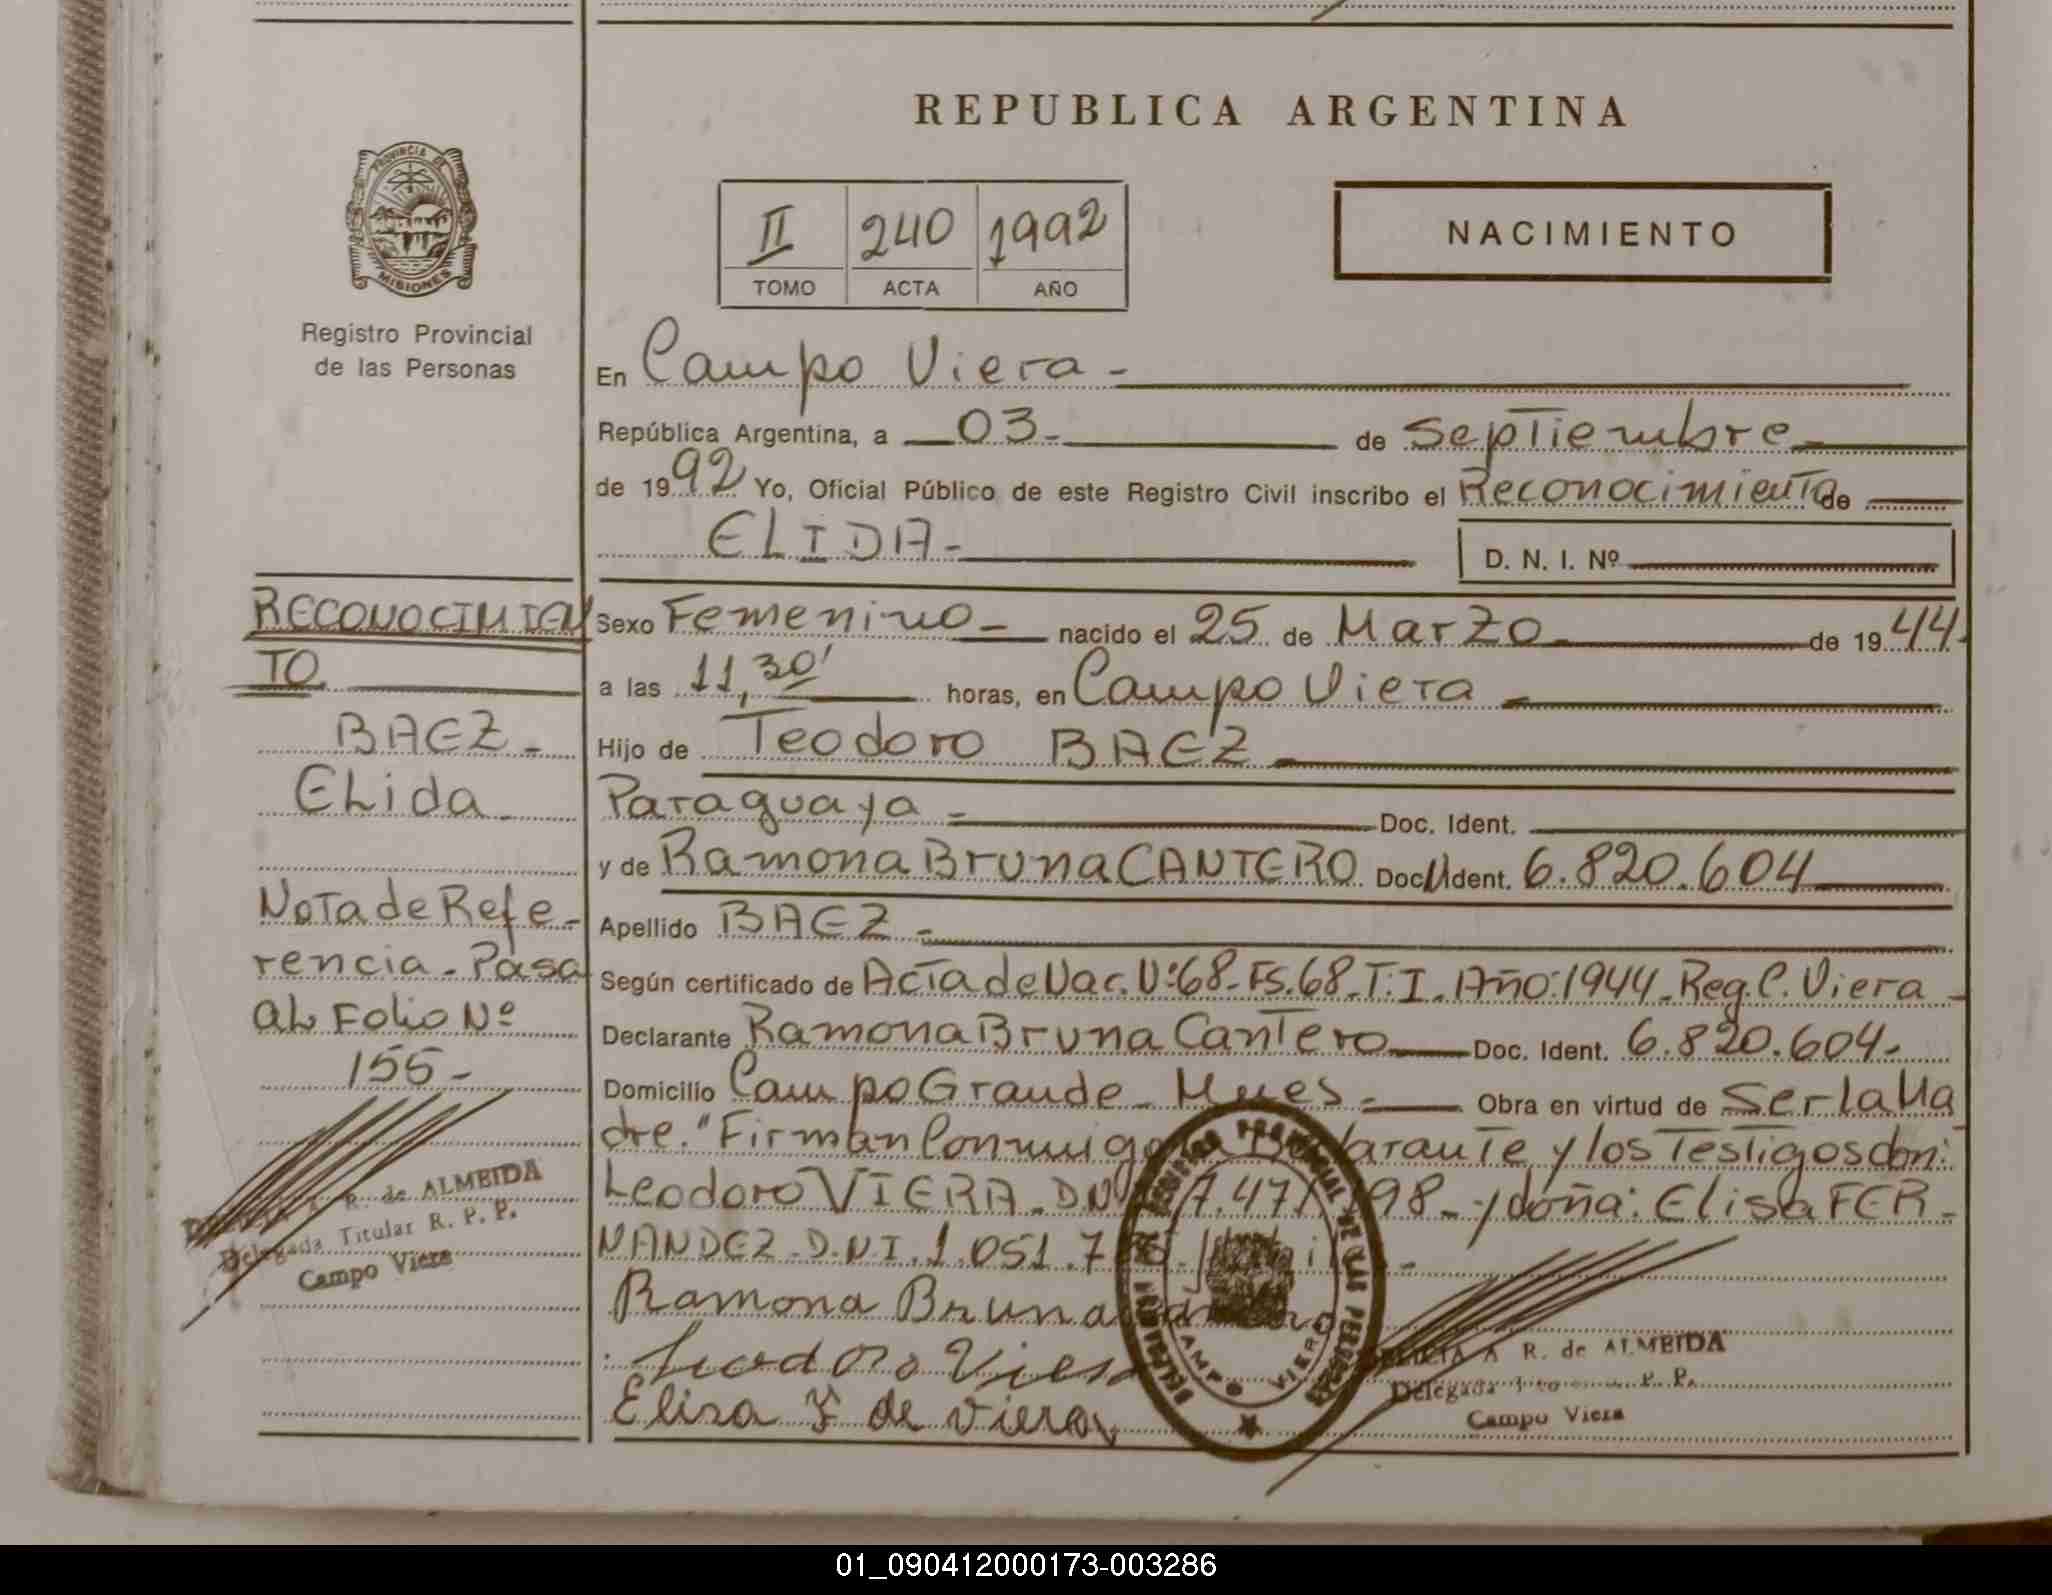 REPUBLICA ARGENTINA
PROVINCIA DE
MISIONES
Registro Provincial
de las Personas
II 240 1992
TOMO ACTA AÑO
NACIMIENTO
En Campo Viera -
República Argentina, a 03- de Septiembre
de 1992 Yo, Oficial Público de este Registro Civil inscribo el Reconocimiento de
ELIDA- D. N. I. Nº
RECONOCIMIEN
TO
BAEZ -
Elida
Nota de Refe-
rencia - Pasa
al Folio Nº
155-
R. de ALMEIDA
Delegada Titular R. P. P.
Campo Viera
Sexo Femenino - nacido el 25 de Marzo de 1944-
a las 11,30' horas, en Campo Viera
Hijo de Teodoro BAEZ
Paraguaya - Doc. Ident.
y de Ramona Bruna CANTERO Doc. Ident. 6.820.604
Apellido BAEZ -
Según certificado de Acta de Nac. Nº:68-Fs.68-T:I. Año:1944-Reg.C.Viera -
Declarante Ramona Bruna Cantero Doc. Ident. 6.820.604-
Domicilio Campo Grande - Mnes - Obra en virtud de Ser la Ma
dre." Firman Conmigo la Declarante y los Testigos don:
Leodoro VIERA - DNI 7.47 98 - y doña: Elisa FER-
NANDEZ - D.N.I. 1.051.7
Ramona Bruna Cantero
Leodoro Viera
Elisa F de Viera
REGISTRO PROVINCIAL DE LAS PERSONAS
CAMPO VIERA
A R. de ALMEIDA
Delegada P. P.
Campo Viera
01_090412000173-003286